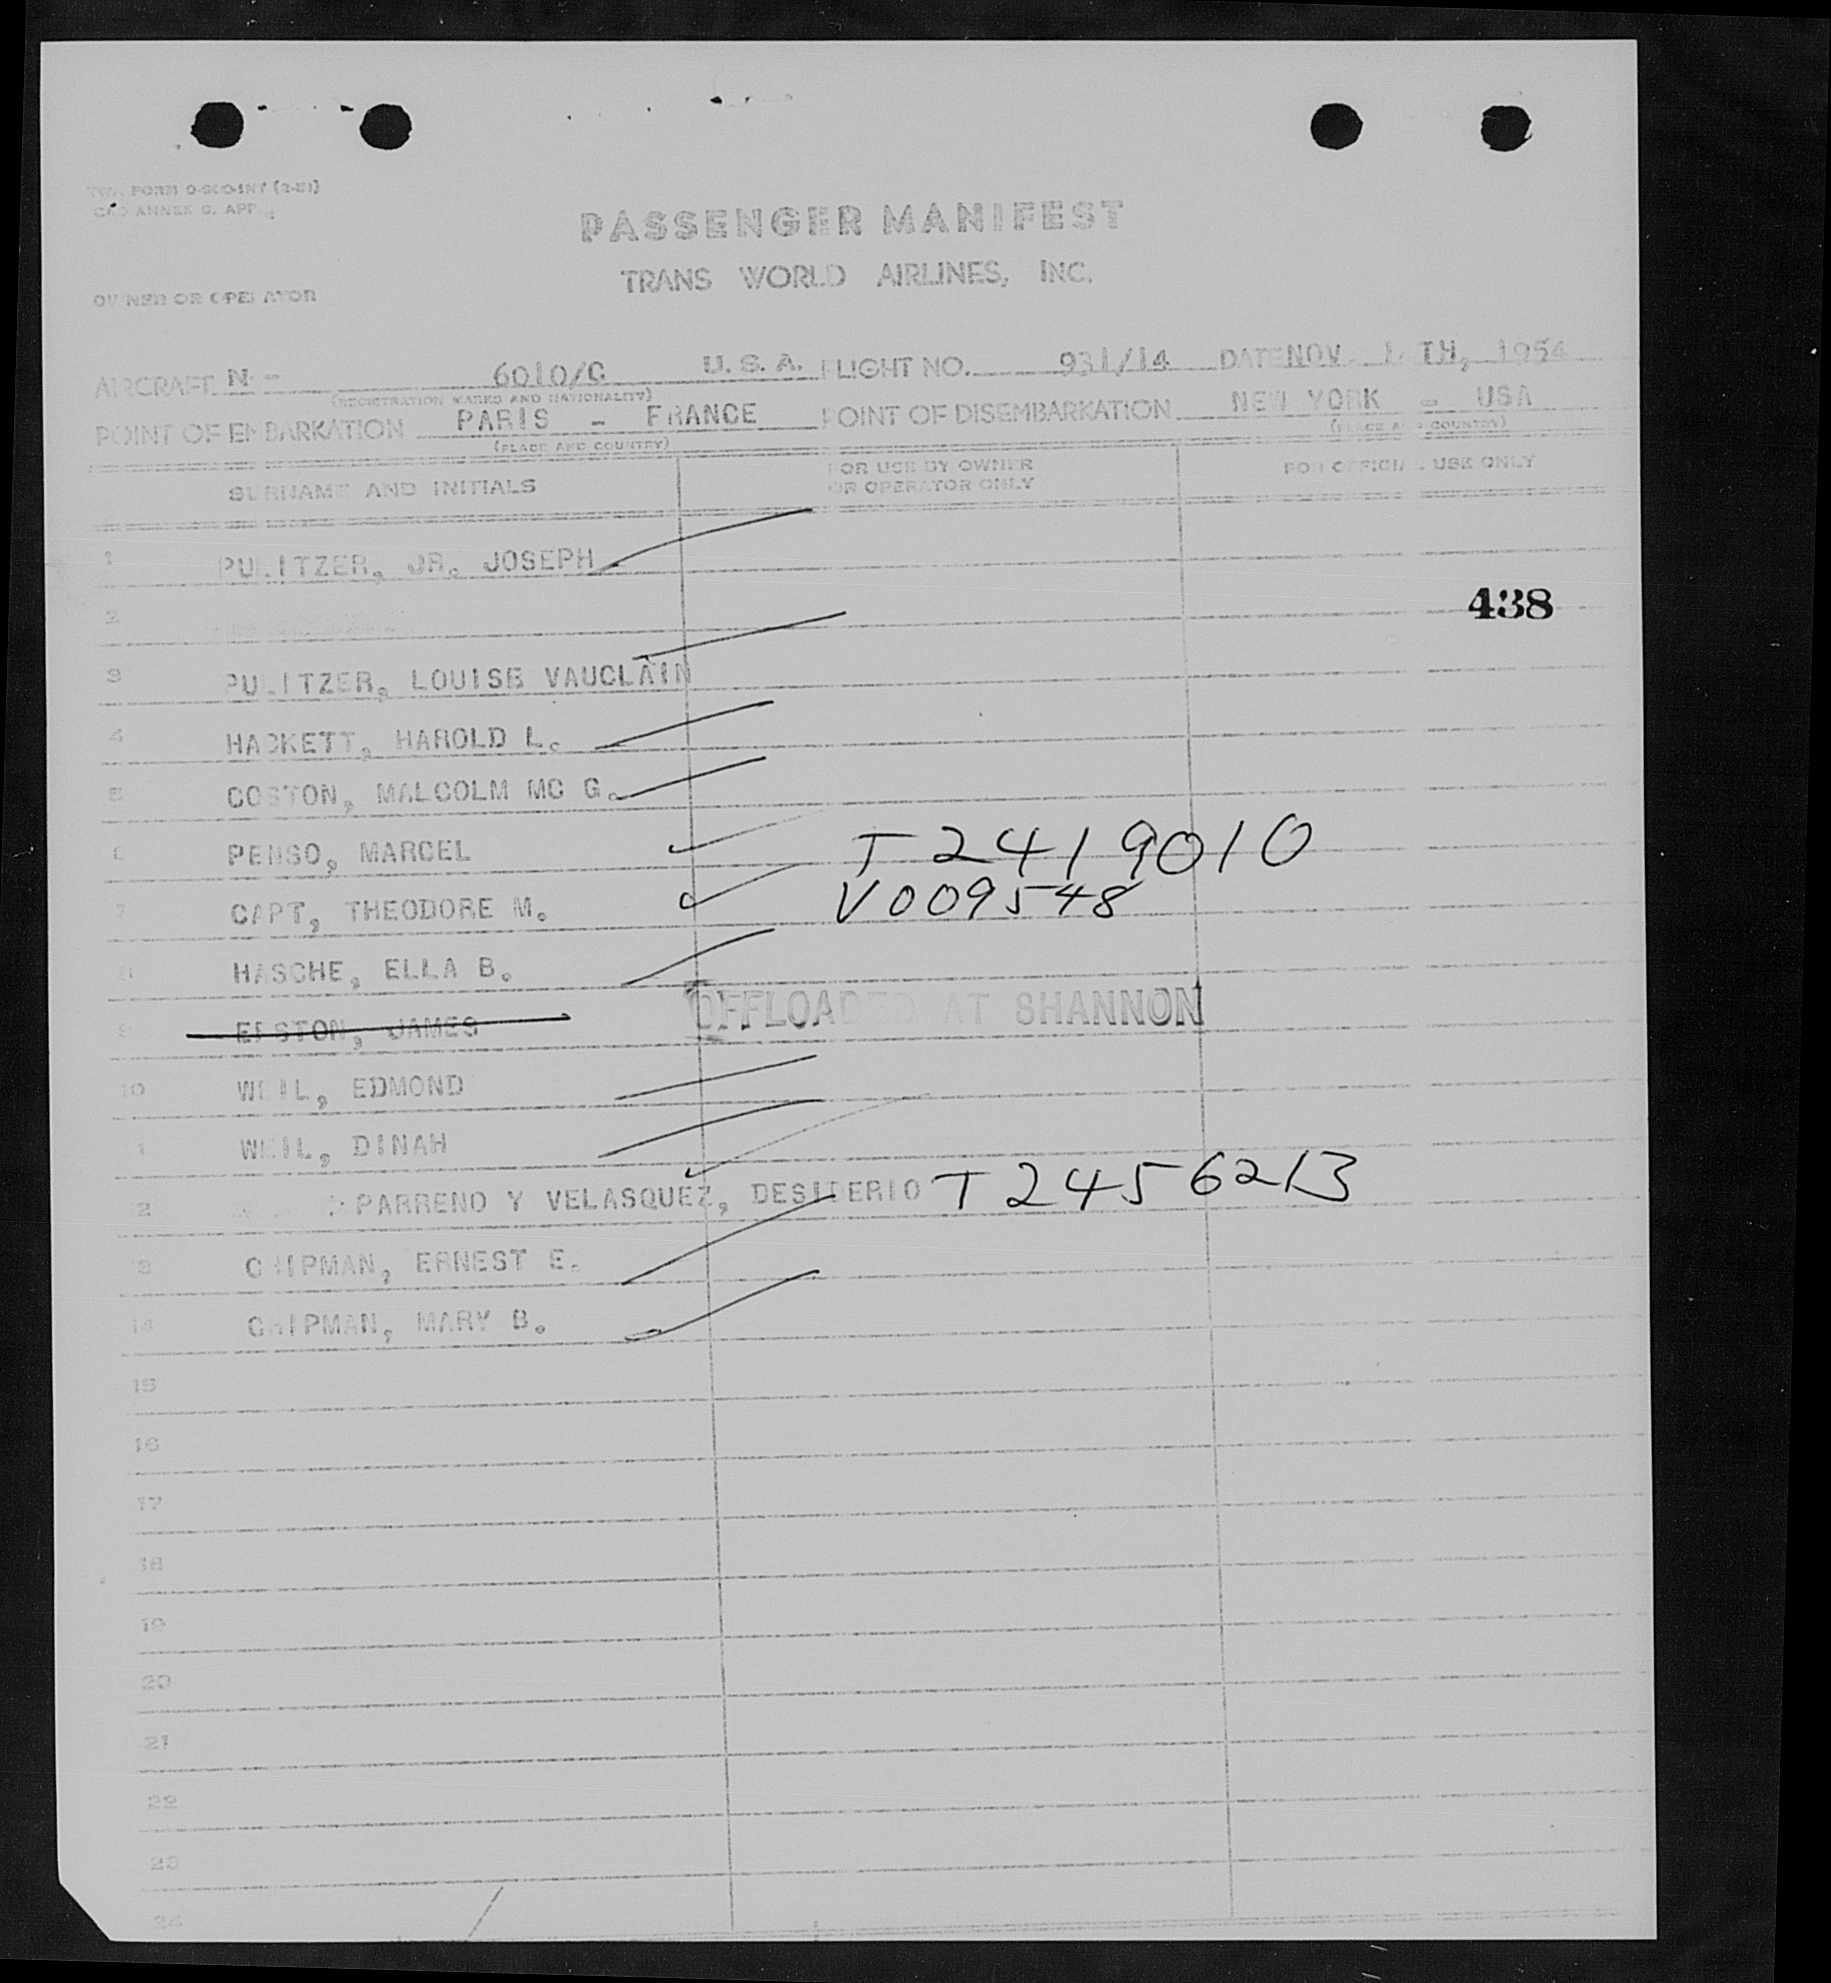 TWA FORM
ANNEX 9, APP.
PASSENGER MANIFEST
TRANS WORLD AIRLINES, INC.
OWNER OR OPERATOR
AIRCRAFT N - 6010/C U.S.A. FLIGHT NO. 931/14 DATE NOV. TH, 1954
(REGISTRATION MARKS AND NATIONALITY)
POINT OF EMBARKATION PARIS - FRANCE POINT OF DISEMBARKATION NEW YORK - USA
(PLACE AND COUNTRY) (PLACE AND COUNTRY)
SURNAME AND INITIALS FOR USE BY OWNER OR OPERATOR ONLY FOR OFFICIAL USE ONLY
1 PULITZER, JR. JOSEPH
2 438
3 PULITZER, LOUISE VAUCLAIN
4 HACKETT, HAROLD L.
5 COSTON, MALCOLM MC G.
6 PENSO, MARCEL T2419010
7 CAPT, THEODORE M. V009548
8 HASCHE, ELLA B.
9 ELSTON, JAMES OFFLOADED AT SHANNON
10 WEIL, EDMOND
1 WEIL, DINAH
2 PARRENO Y VELASQUEZ, DESIDERIO T2456213
3 CHIPMAN, ERNEST E.
14 CHIPMAN, MARY B.
15
16
17
18
19
20
21
22
23
24